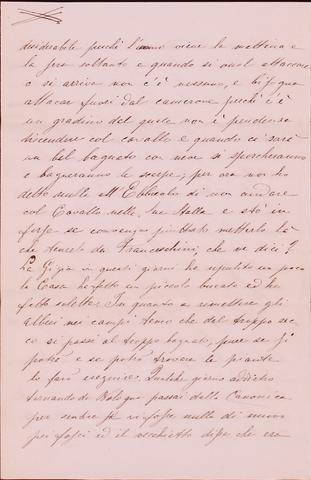 desiderabile perchè l'uomo viene la mattina e
la sera soltanto e quando si vuol attaccare
o si arriva non c'è nessuno, e bisogna
attacar fuori dal camerone perchè c'è
un gradino del quale non è prudenza
discendere col cavallo e quando ci sarà
un bel bagnato con neve si sporcheranno
e bagneranno le scarpe, per ora non ho
detto nulla all' di non andare
col Cavallo nella sua Stalla e stò in
forse se convenga piuttosto metterlo là
che tenerlo da Franceschini, che ne dici?
La Gigia in questi giorni ha ripulito un poco
la Casa ha fatto un piccolo bucato ed ha
fatto solette. In quanto a rimettere gli
alberi nei campi temo che dal troppo sec-
co si passi al troppo bagnato, pure se si
potrà e se potrò trovare le piante
lo farò eseguire. Qualche giorno addietro
tornando da Bologna passai dalla Canonica
per sentire se vi fosse nulla di nuovo
pei fossi ed il vecchietto disse che era